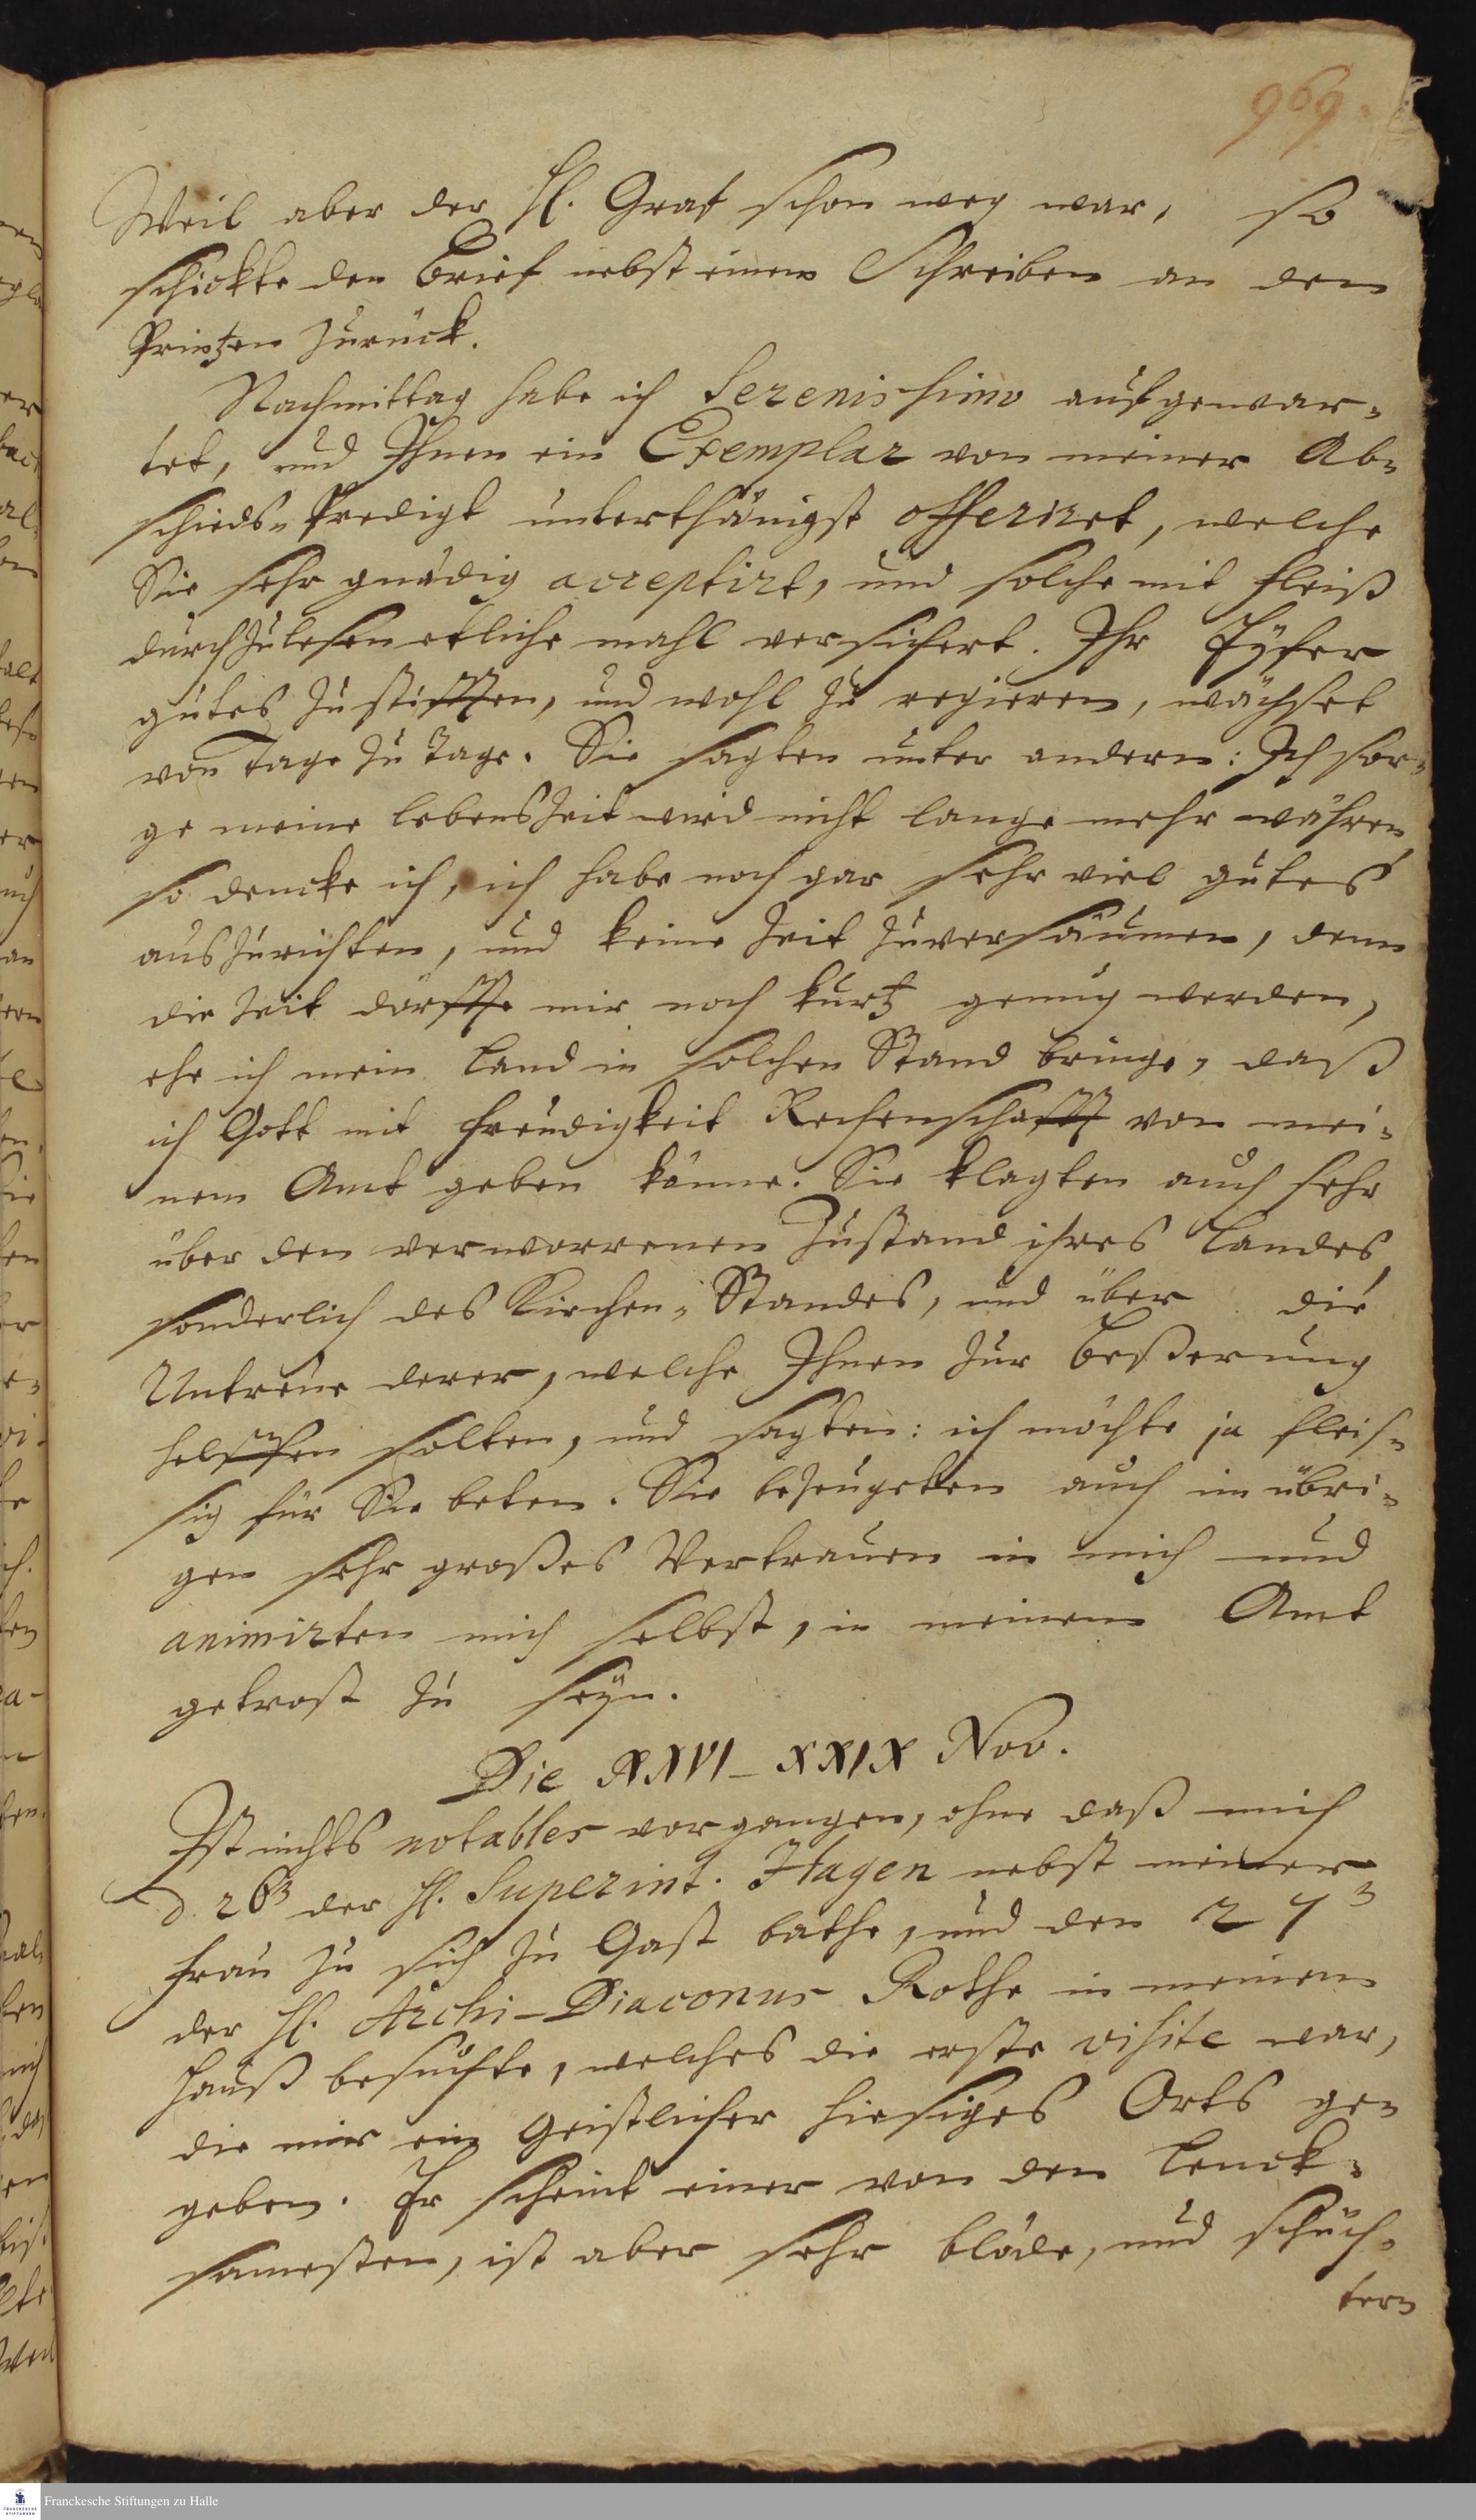 969.
Weil aber der H. Graf schon weg war, so
schickte den Brief nebst einem Schreiben an den
Printzen zurück.
Nachmittag habe ich Serenissimo aufgewar-
tet, und Ihnen ein Exemplar von meiner Ab-
schieds-Predigt unterthänigst offeriret, welche
Sie sehr gnädig acceptirt, und solche mit Fleiß
durchzulesen etliche mahl versichert. Ihr Eyfer
gutes zu stifften, und wohl zu regieren, wächset
von Tage zu Tage. Sie sagten unter andern: Ich sor-
ge meine Lebenszeit wird nicht lange mehr währen,
so dencke ich, ich habe noch gar sehr viel gutes
auszurichten, und keine Zeit zuversäumen, denn
die Zeit dörffte mir noch kurtz genug werden,
ehe ich mein Land in solchen Stand bringe, daß
ich Gott mit Freudigkeit Rechenschafft von mei-
nem Amt geben könne. Sie klagten auch sehr
über den verworrenen Zustand ihres Landes,
sonderlich des Kirchen-Standes, und über die
Untreue derer, welche Ihnen zur Beßerung
helffen solten, und sagten: ich möchte ja fleis-
sig für Sie beten. Sie bezeugeten auch im übri-
gen sehr großes Vertrauen in mich und
animirten mich selbst, in meinem Amt
getrost zu seyn.
Die XXVI-XXIX Nov.
Ist nichts notables vorgangen, ohne daß mich
d. 26 der H. Superint. Hagen nebst meiner
Frau zu sich zu Gast bathe, und den 27
der H. Archi-Diaconus Rothe in meinem
Hauß besuchte, welches die erste visite war,
die mir ein Geistlicher hiesiges Orts ge-
geben. Er scheint einer von den Lenck-
samesten, ist aber sehr blöde, und schüch-
tern
Franckesche Stiftungen zu Halle